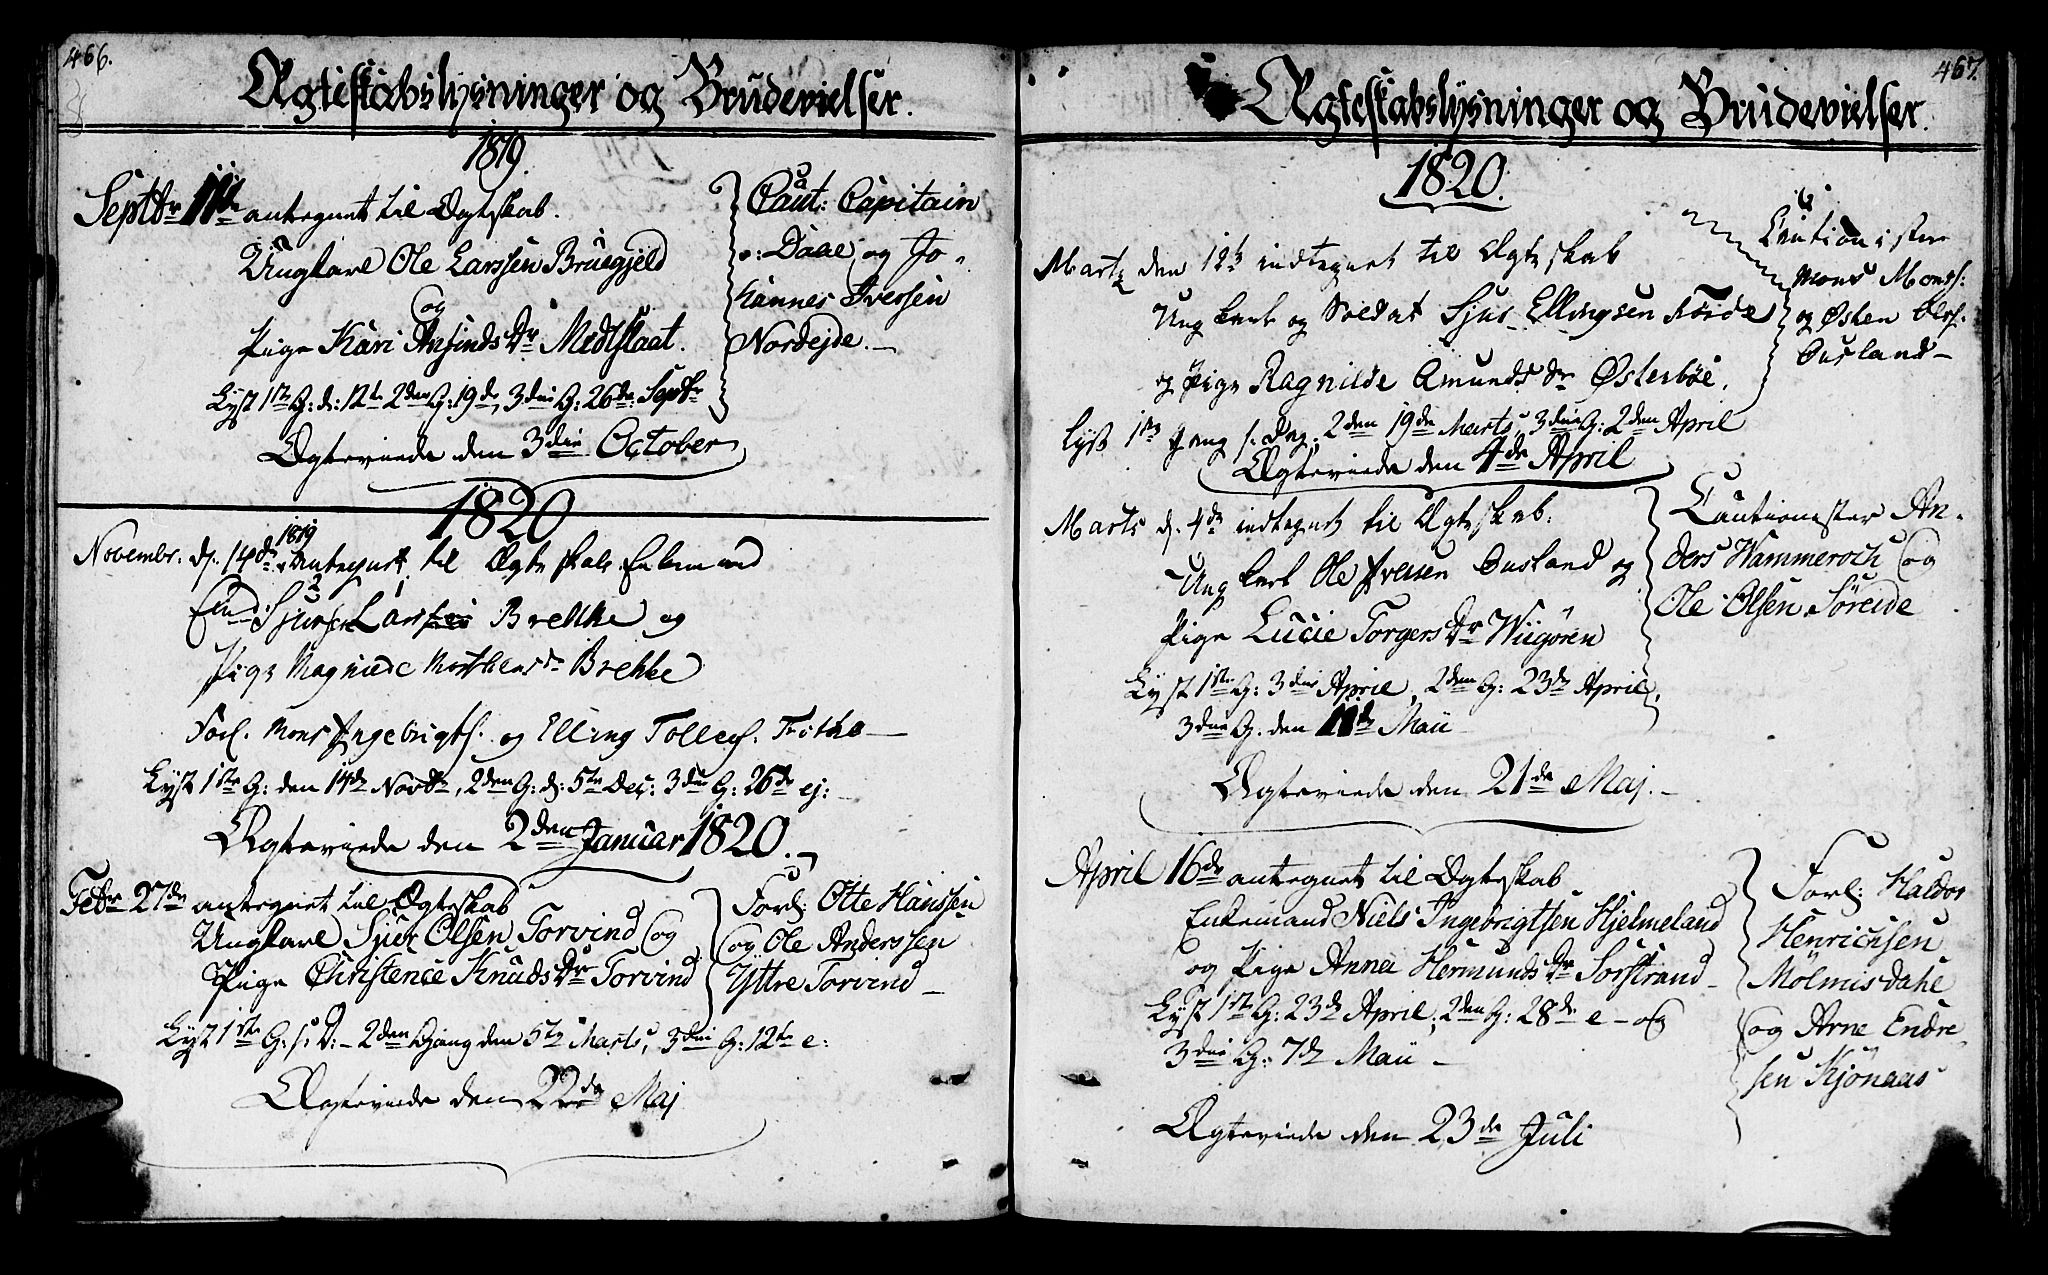 466.
Ægteskabslysninger og Brudevielser.
1819.
Septbr 11te antegnet til Ægteskab.
Ungkarl Ole Larssen Bruegjeld
og
Pige Kari Ansinds Dr Medtslaat.
Lyst 1ste G: d: 12te 2den G: 19de, 3die G: 26de Septbr
Ægteviede den 3die October
Caut: Capitain
v: Daae og Jo-
hannes Iversen
Nordejde.
1820
Novembr. d. 14de 1819 antegnet til Ægteskab Enkemand
Sjursen Larssen Brekke og
Pige Magnilde Mortkens dr Brekke
Forl. Mons Ingebrigts. og Elling Tollefs. Fritha
Lyst 1ste G: den 14de Novbr, 2den G: d: 5te Dec: 3die G: 26de ej:
Ægteviede den 2den Januar 1820.
Febr 27de antegnet til Ægteskab
Ungkarl Sjur Olsen Torvind og
Pige Christence Knuds Dr Torvind
Lyst 1ste G: s: D: - 2den Gang den 5te Marts, 3die G: 12te e:
Ægteviede den 22de Maj
Forl: Otte Hanssen
og Ole Anderssen
Yttre Torvind
467.
Ægteskabslysninger og Brudevielser.
1820.
Martz den 12te indtegnet til Ægteskab
Ungkarl og Soldat Sjur Ellingsen Förde
og Pige Ragnilde Amunds dr Østerböe.
Lyst 1ste Gang s. Dag. 2den 19de Marts, 3die G: 2den April
Ægteviede den 4de April
Cautionister
Mons Monss:
og Østen Olss.
Ousland
Marts d. 4de indtegnet til Ægteskab:
Ungkarl Ole Iversen Ousland og
Pige Lucie Torgers Dr Wiigören
Lyst 1ste G: 3die April, 2den G: 23de April,
3die G. den 11te Maii
Ægteviede den 21de Maj.
Cautionister An-
ders Hammeroch og
Ole Olsen Söreide
April 16de antegnet til Ægteskab
Enkemand Niels Ingebrigtsen Hjelmeland
og Pige Anna Hermunds Dr Sorstrand
Lyst 1ste G: 23de April, 2den G: 28de e - og
3die G: 7de Maii
Ægteviede den 23de Juli
Forl: Haldor
Henrichsen
Mölmisdahl
og Arne Endre-
sen Kjönaas